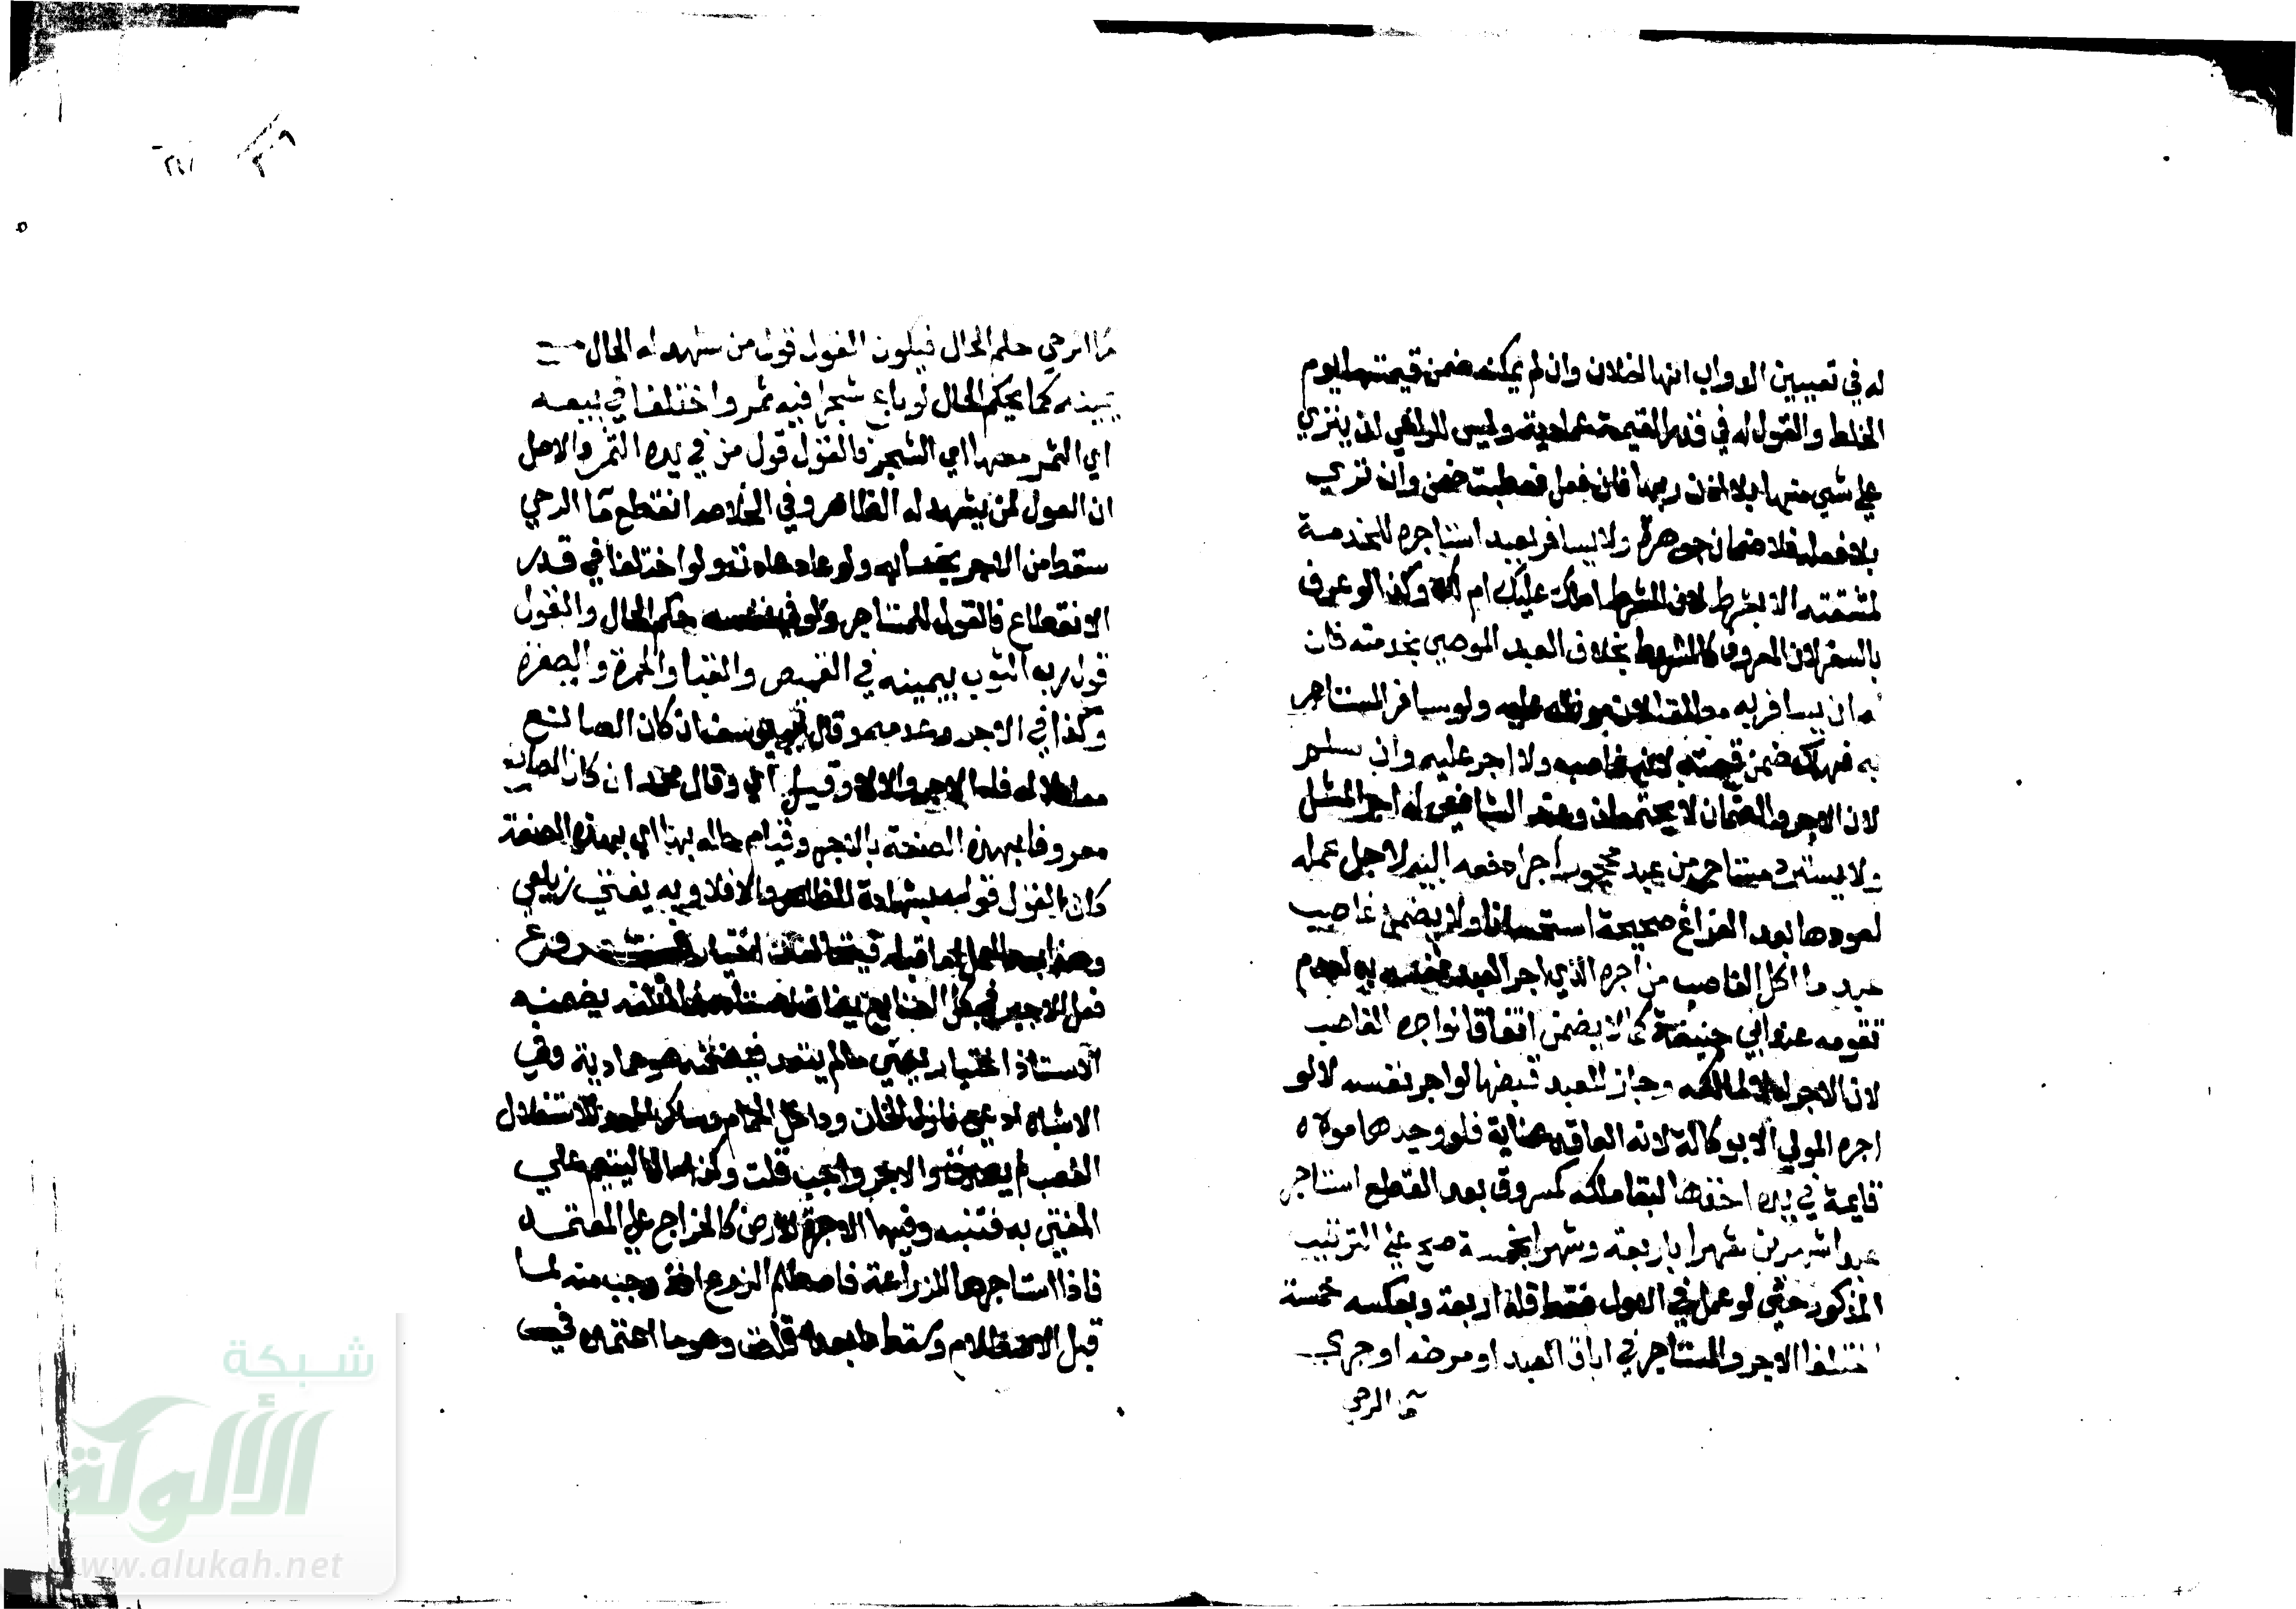 له في تعيين الدواب انها لفلان وان لم يمكنه ضمن قيمتها يوم
الخلط والقول له في قدر القيمة عمادية وليس للراعي ان ينزي
علي شي منها بلا اذن ربها فان فعل فعطبت ضمن وان نزي
بلا فعله فلا ضمان جوهرة ولا يسافر بعبد استاجره للخدمة
لمشقته الا بشرط لان الشرط املك عليك ام لك وكذا لو عرف
بالسفر لان المعروف كالمشروط بخلاف العبد الموصي بخدمته فان
له ان يسافر به مطلقا لان مونته عليه ولو سافر المستاجر
به فهلك ضمن قيمته لانه غاصب ولا اجر عليه وان سلم
لان الاجر والضمان لا يجتمعان وعند الشافعي له اجر المثل
ولا يسترد مستاجر من عبد محجور اجرا دفعه اليه لاجل عمله
لعودها بعد الفراغ صحيحة استحسانا ولا يضمن غاصب
عبد ما اكل الغاصب من اجره الذي اجر العبد نفسه به لعدم
تقومه عند ابي حنيفة كما لا يضمن اتفاقا لو اجره الغاصب
لان الاجر له لا لمالكه وجاز للعبد قبضها لو اجر نفسه لا لو
اجره المولي الا بوكالة لانه العاقد عناية فلو وجدها مولاه
قايمة في يده اخذها لبقا ملكه كمسروق بعد القطع استاجر
عبدا شهرين شهرا باربعة وشهرا بخمسة صح علي الترتيب
المذكور حتي لو عمل في الاول فقط فله اربعة وبعكسه خمسة
اختلفا الاجر والمستاجر في اباق العبد او مرضه او جري
ما الرحي
ما الرحي حكم الحال فيكون القول قول من يشهد له الحال مع
يمينه كما يحكم الحال لو باع شجرا فيه ثمر واختلفا في بيعه
اي الثمر معها اي الشجر فالقول قول من في يده الثمر والاصل
ان القول لمن يشهد له الظاهر وفي الخلاصه انقطع ما الرحي
سقط من الاجر بحسابه ولو عاد عادت ولو اختلفا في قدر
الانقطاع فالقول للمستاجر ولو في نفسه حكم الحال والقول
قول رب الثوب بيمينه في القميص والقبا والحمرة والصفرة
وكذا في الاجر وعدمه وقال ابو يوسف ان كان الصانع
معاملا له فله الاجر والا لا وقيل اي وقال محمد ان كان الصانع
معروفا بهذه الصنعة بالاجر وقيام حاله بها اي بهذه الصنعة
كان القول قوله بشهادة الظاهر والا فلا وبه يفتي زيلعي
وهذا بعد العمل اما قبله فيتحالفان اختيار فرع
فعل الاجير في كل الصنايع يضاف لاستاذه فما اتلفه يضمنه
الاستاذ اختيار يعني ما لم يتعد فيضمنه هو عمادية وفي
الاشباه ادعي نازل الخان وداخل الحمام وساكن المعد للاستغلال
الغصب لم يصدق والاجر واجب قلت وكذا مال اليتيم علي
المفتي به فتنبه وفيها الاجرة للارض كالخراج علي المعتمد
فاذا استاجرها للزراعة فاصطلم الزرع افة وجب منه لما
قبل الاصطلام وسقط ما بعده قلت وهو ما اعتمده في
شبكة
الألوكة
www.alukah.net